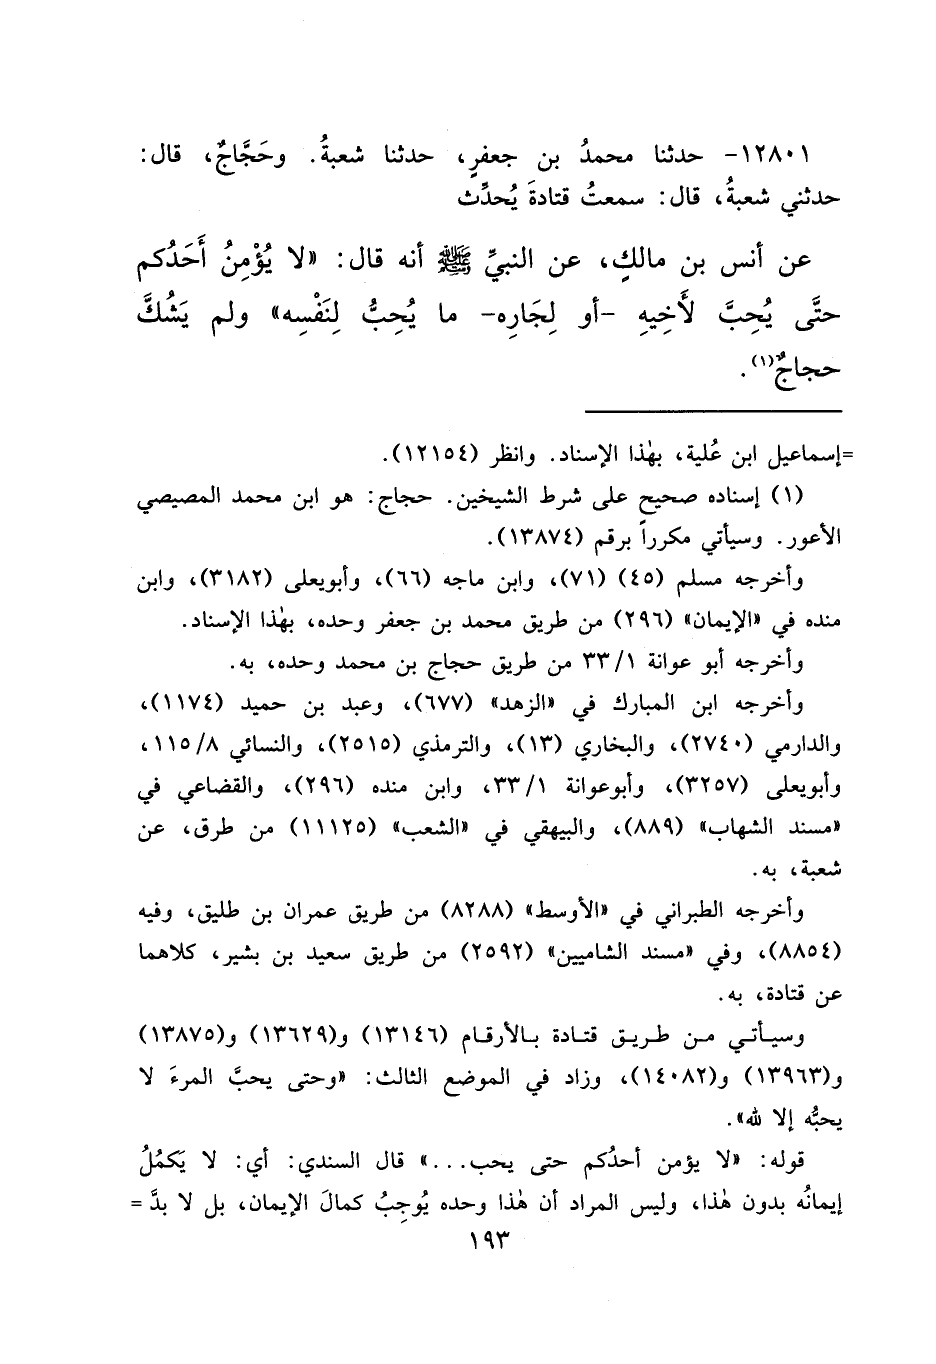 ١٢٨٠١- حدثنا محمدُ بن جعفرٍ، حدثنا شعبةُ. وحَجَّاجٌ، قال:
حدثني شعبةُ، قال: سمعتُ قتادةَ يُحدِّث
عن أنس بن مالكٍ، عن النبيِّ ﷺ أنه قال: «لا يُؤْمِنُ أَحَدُكم
حتَّى يُحِبَّ لأَخِيهِ -أو لِجَارِه- ما يُحِبُّ لِنَفْسِه» ولم يَشُكَّ
حجاجٌ(١).
=إسماعيل ابن عُلية، بهٰذا الإسناد. وانظر (١٢١٥٤).
(١) إسناده صحيح على شرط الشيخين. حجاج: هو ابن محمد المصيصي
الأعور. وسيأتي مكرراً برقم (١٣٨٧٤).
وأخرجه مسلم (٤٥) (٧١)، وابن ماجه (٦٦)، وأبويعلى (٣١٨٢)، وابن
منده في «الإيمان» (٢٩٦) من طريق محمد بن جعفر وحده، بهٰذا الإسناد.
وأخرجه أبو عوانة ٣٣/١ من طريق حجاج بن محمد وحده، به.
وأخرجه ابن المبارك في «الزهد» (٦٧٧)، وعبد بن حميد (١١٧٤)،
والدارمي (٢٧٤٠)، والبخاري (١٣)، والترمذي (٢٥١٥)، والنسائي ١١٥/٨،
وأبويعلى (٣٢٥٧)، وأبوعوانة ٣٣/١، وابن منده (٢٩٦)، والقضاعي في
«مسند الشهاب» (٨٨٩)، والبيهقي في «الشعب» (١١١٢٥) من طرق، عن
شعبة، به.
وأخرجه الطبراني في «الأوسط» (٨٢٨٨) من طريق عمران بن طليق، وفيه
(٨٨٥٤)، وفي «مسند الشاميين» (٢٥٩٢) من طريق سعيد بن بشير، كلاهما
عن قتادة، به.
وسيأتي من طريق قتادة بالأرقام (١٣١٤٦) و(١٣٦٢٩) و(١٣٨٧٥)
و(١٣٩٦٣) و(١٤٠٨٢)، وزاد في الموضع الثالث: «وحتى يحبَّ المرءَ لا
يحبُّه إلا لله».
قوله: «لا يؤمن أحدُكم حتى يحب...» قال السندي: أي: لا يَكمُلُ
إيمانُه بدون هٰذا، وليس المراد أن هٰذا وحده يُوجِبُ كمالَ الإيمان، بل لا بدَّ =
١٩٣